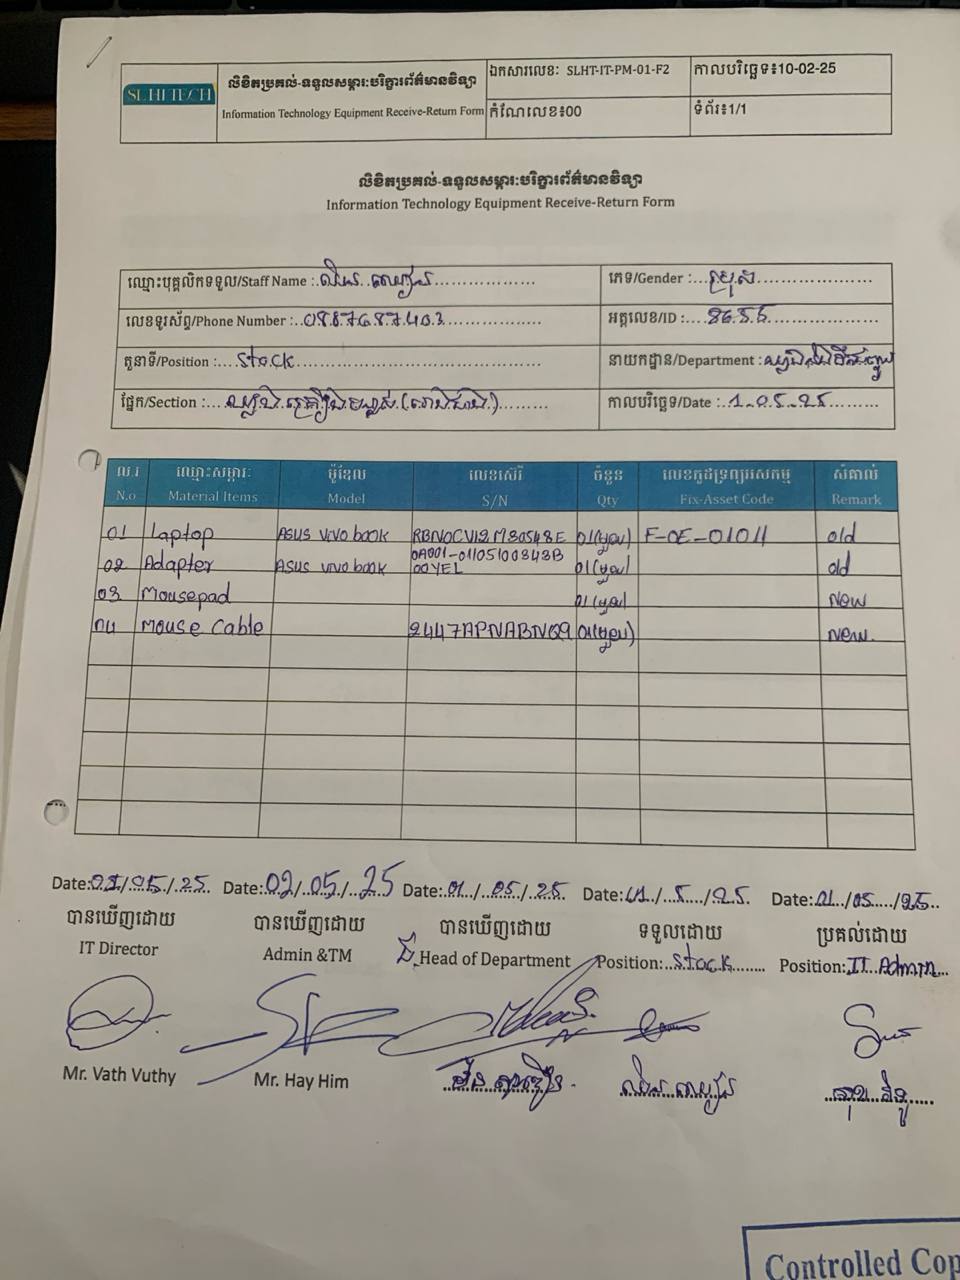 SLHI TECH
លិខិតប្រគល់-ទទួលសម្ភារៈបរិក្ខារព័ត៌មានវិទ្យា
Information Technology Equipment Receive-Return Form
ឯកសារលេខៈ SLHT-IT-PM-01-F2
កាលបរិច្ឆេទ៖10-02-25
កំណែលេខ៖00
ទំព័រ៖1/1
លិខិតប្រគល់-ទទួលសម្ភារៈបរិក្ខារព័ត៌មានវិទ្យា
Information Technology Equipment Receive-Return Form
ឈ្មោះបុគ្គលិកទទួល/Staff Name :
ភេទ/Gender : ប្រុស
លេខទូរស័ព្ទ/Phone Number : 0887687403
អត្តលេខ/ID : 8655
តួនាទី/Position : Stock
នាយកដ្ឋាន/Department :
ផ្នែក/Section :
កាលបរិច្ឆេទ/Date : 1-05-25
ល.រ ឈ្មោះសម្ភារៈ ម៉ូឌែល លេខស៊េរី ចំនួន លេខកូដទ្រព្យអសកម្ម សំគាល់
N.o Material Items Model S/N Qty Fix-Asset Code Remark
01 Laptop ASUS vivo book RBN0CV12M80548E 01(មួយ) F-OE-01011 old
02 Adapter ASUS vivo book 0A001-01105100843B00YEL 01(មួយ) old
03 Mousepad 01(មួយ) New
04 Mouse Cable 2447APNABNQ9 01(មួយ) New.
Date: 02/05/25 Date: 02/05/25 Date: 01/05/25 Date: 01/5/25 Date: 01/05/25
បានឃើញដោយ បានឃើញដោយ បានឃើញដោយ ទទួលដោយ ប្រគល់ដោយ
IT Director Admin &TM Head of Department Position: Stock Position: IT Admin
Mr. Vath Vuthy Mr. Hay Him
Controlled Cop